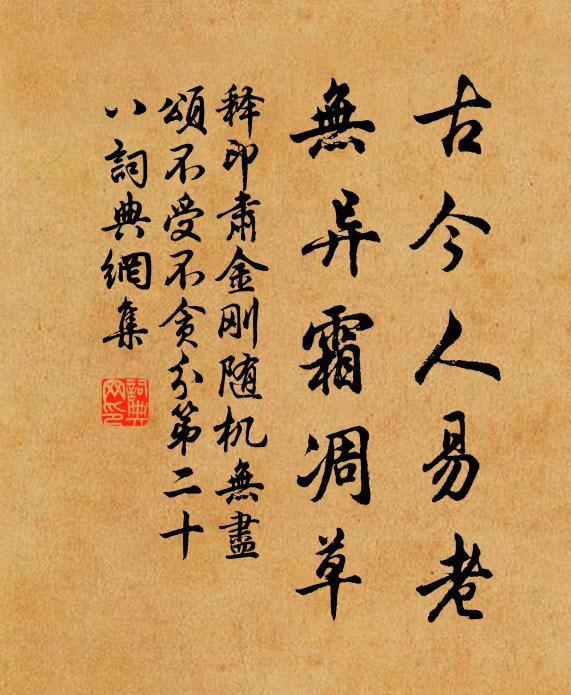 古今人易老
無异霜凋草
释印肃金刚随机無盡
頌不受不贪分第二十
八詞典網集
詞典网印